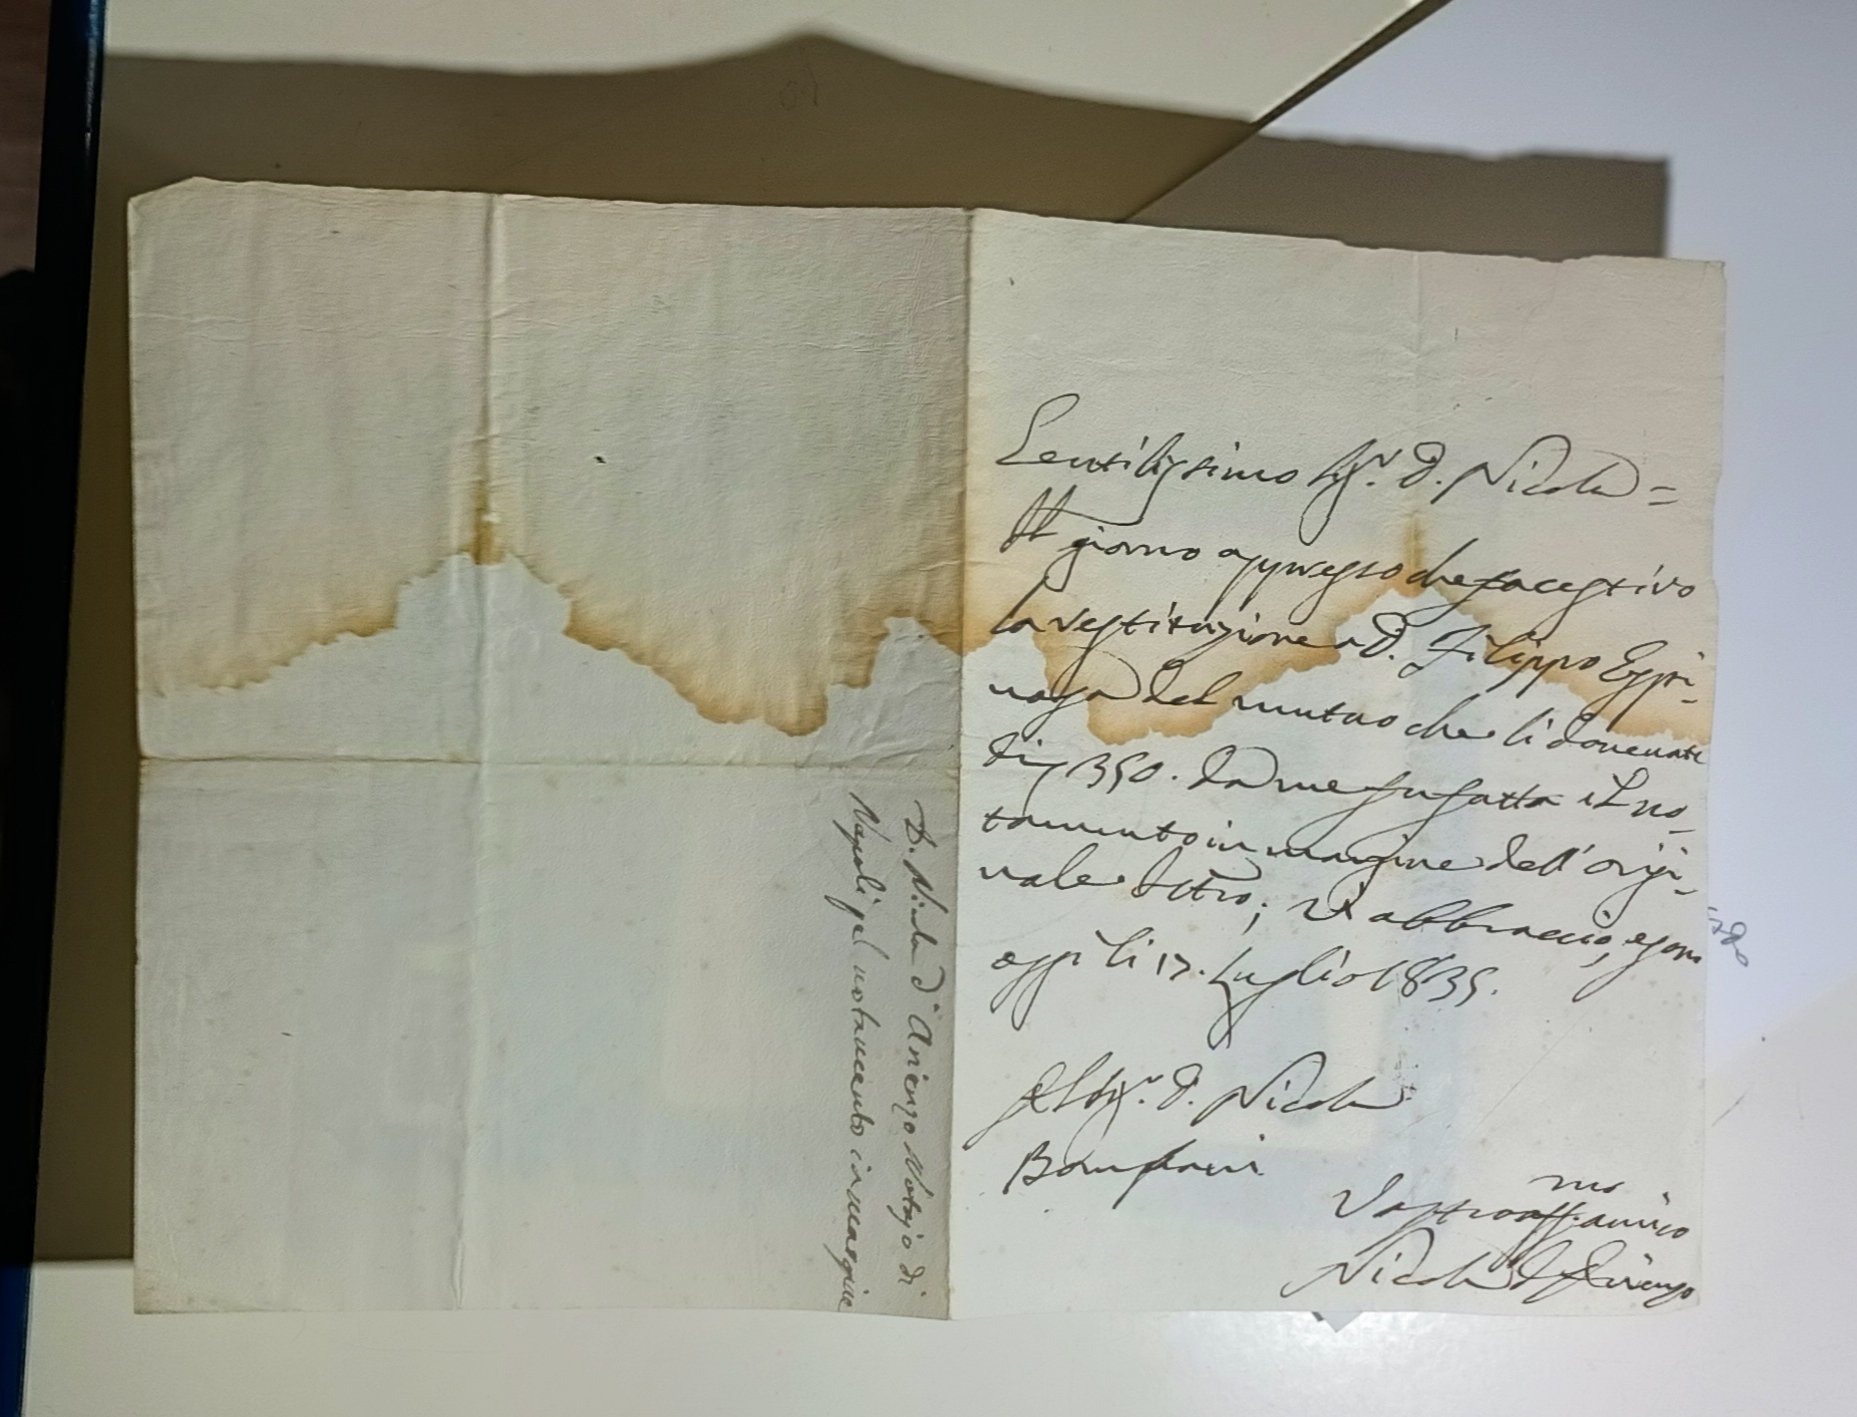 Gentilissimo Sigr. D. Nicola =
Il giorno appresso che facestivo
la restituzione a D. Filippo Espi-
naga del mutuo che li dovevate
di 350. da me fu fatto il no-
tamento in margine dell' origi-
nale Istro; Vi abbraccio, e sono
oggi li 17. Luglio 1835.
Al Sigr. D. Nicola
Vostro aff.mo amico
Nicola d'Arienzo
D. Nicola d'Arienzo Notajo di
Napoli pel notamento in margine